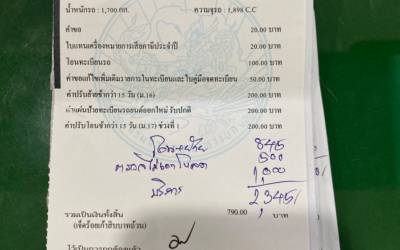 น้ำหนักรถ : 1,700 กก. ความจุรถ : 1,898 C.C
ค่าขอ 20.00 บาท
ใบแทนเครื่องหมายการเสียภาษีประจำปี 20.00 บาท
โอนทะเบียนรถ 100.00 บาท
ค่าขอแก้ไขเพิ่มเติมรายการในทะเบียนและใบคู่มือจดทะเบียน 50.00 บาท
ค่าปรับย้ายช้ากว่า 15 วัน (ม.16) 200.00 บาท
ค่าแผ่นป้ายทะเบียนรถยนต์ออกใหม่ รับปกติ 200.00 บาท
ค่าปรับโอนช้ากว่า 15 วัน (ม.17) ช่วงที่ 1 200.00 บาท
845
500
1,000
บริการ 2,345
รวมเป็นเงินทั้งสิ้น 790.00 บาท
(เจ็ดร้อยเก้าสิบบาทถ้วน)